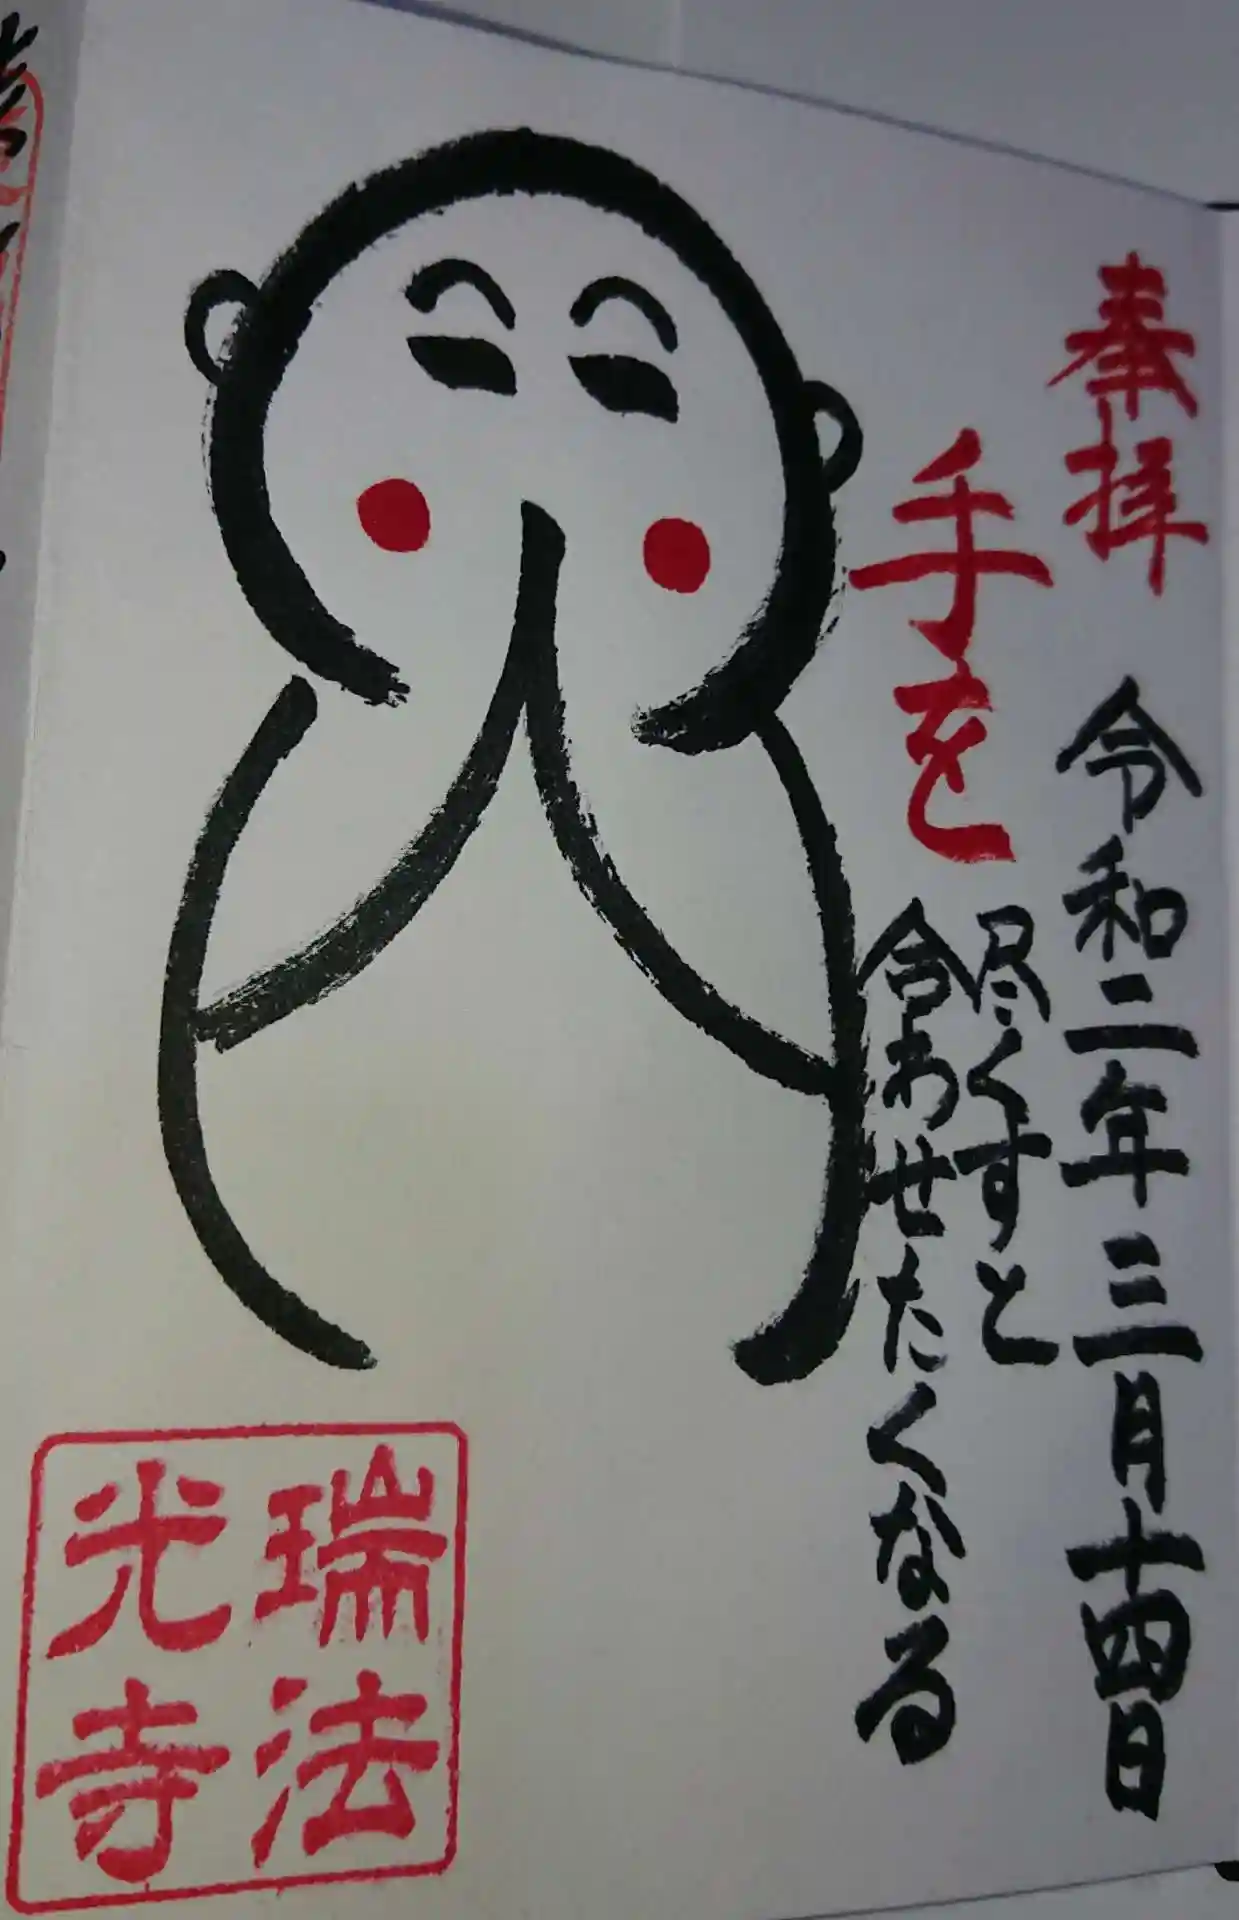 奉拝 令和二年三月十四日
手を
尽くすと
合わせたくなる
瑞法
光寺